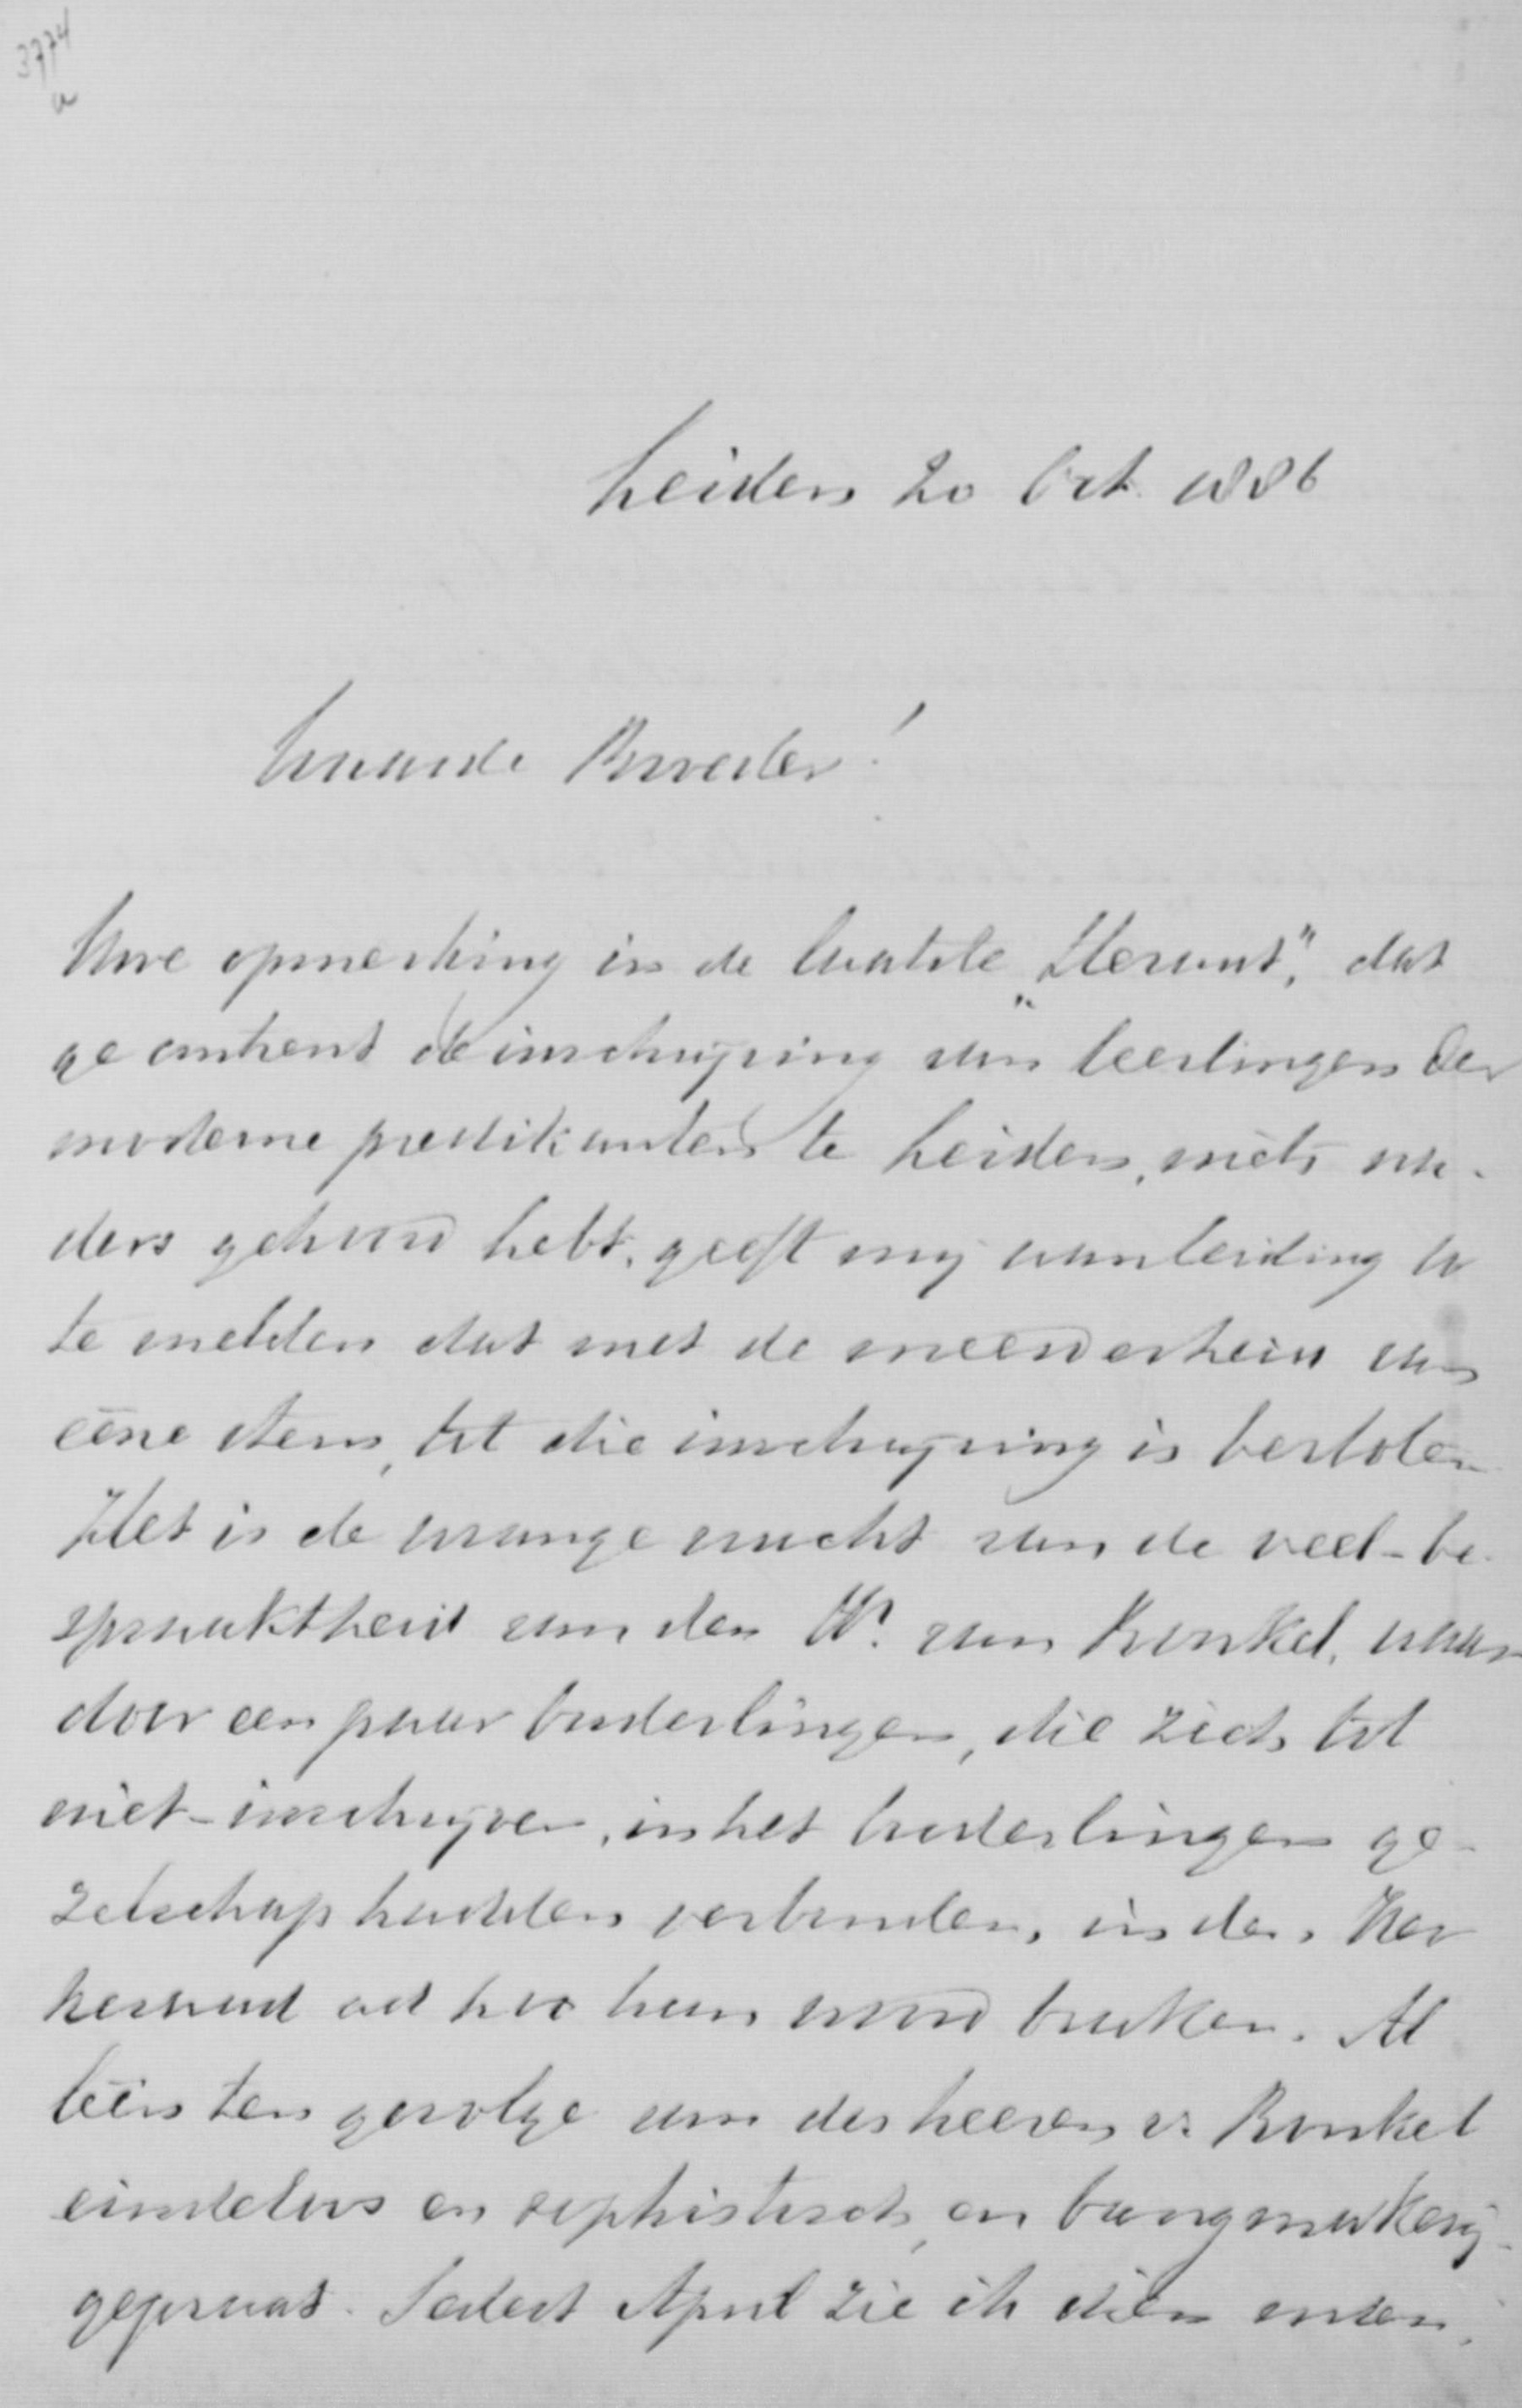 3774
a
Leiden 20 Oct. 1886
Waarde Broeder!
Uwe opmerking in de laatste „Heraut", dat
ge omtrent de inschrijving van leerlingen der
moderne predikanten te Leiden, niets na-
ders gehoord hebt, geeft mij aanleiding U
te melden dat met de meerderheid van
eene stem, tot die inschrijving is besloten
Het is de wrange vrucht van de veel-be-
spraaktheid van den Hr. van Ronkel, waar
door een paar ouderlingen, die zich tot
niet-inschrijven, in het ouderlingen ge-
zelschap hadden verbonden, in den Ker
keraad ad hoc hun woord braken. Al
léén ten gevolge van des heeren v. Ronkel
eindeloos en sophistisch en bangmakerij-
gepraat. Sedert April zie ik dien